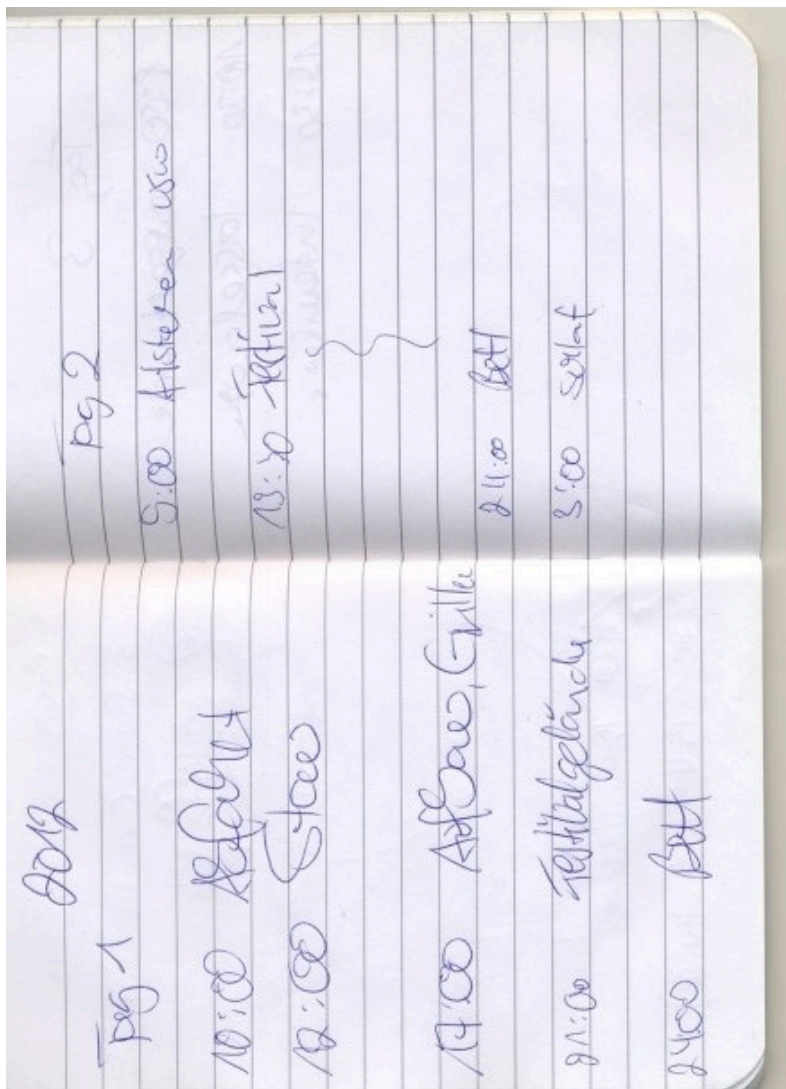 2012
Tag 1
10:00 Abfahrt
12:00 Stau
17:00 Aufbau, Grillen
21:00 Festivalgelände
24:00 Bett
Tag 2
9:00 Aufstehen usw
13:30 Festival
24:00 Bett
3:00 Schlaf